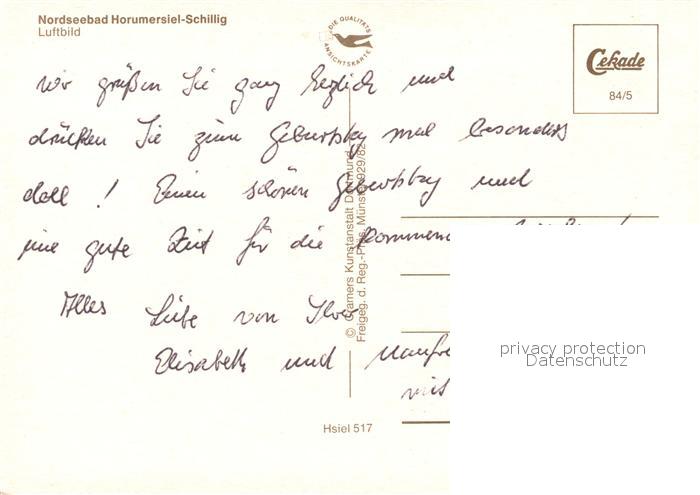 Nordseebad Horumersiel-Schillig
Luftbild
DIE QUALITÄTS
ANSICHTSKARTE
Cekade
84/5
wir grüßen Sie ganz herzlich und
drücken Sie zum Geburtstag mal besonders
doll! Einen schönen Geburtstag und
eine gute Zeit für die kommenden
Alles Liebe von Ihrer
Elisabeth und Manfre
mit
© Kramers Kunstanstalt Dortmund
Freigeg. d. Reg.-Präs. Münster 929/82
Hsiel 517
privacy protection
Datenschutz